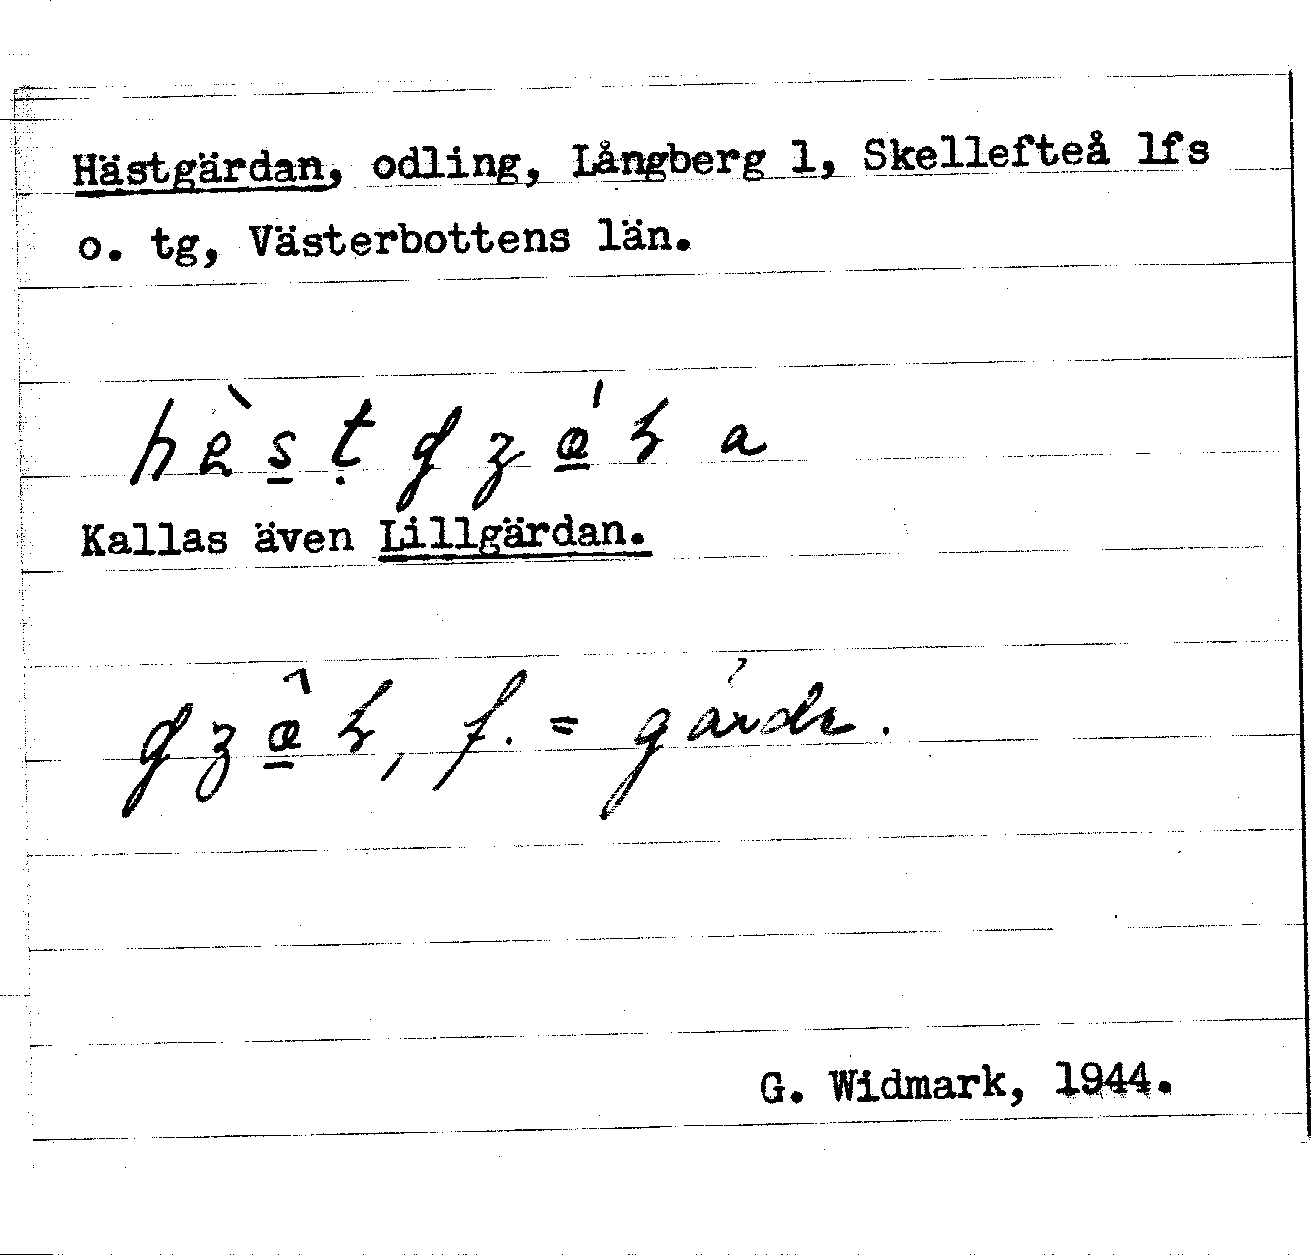 Hästgärdan, odling, Långberg 1, Skellefteå lfs
o. tg, Västerbottens län.
Kallas även Lillgärdan.
f. = gärde.
G. Widmark, 1944.